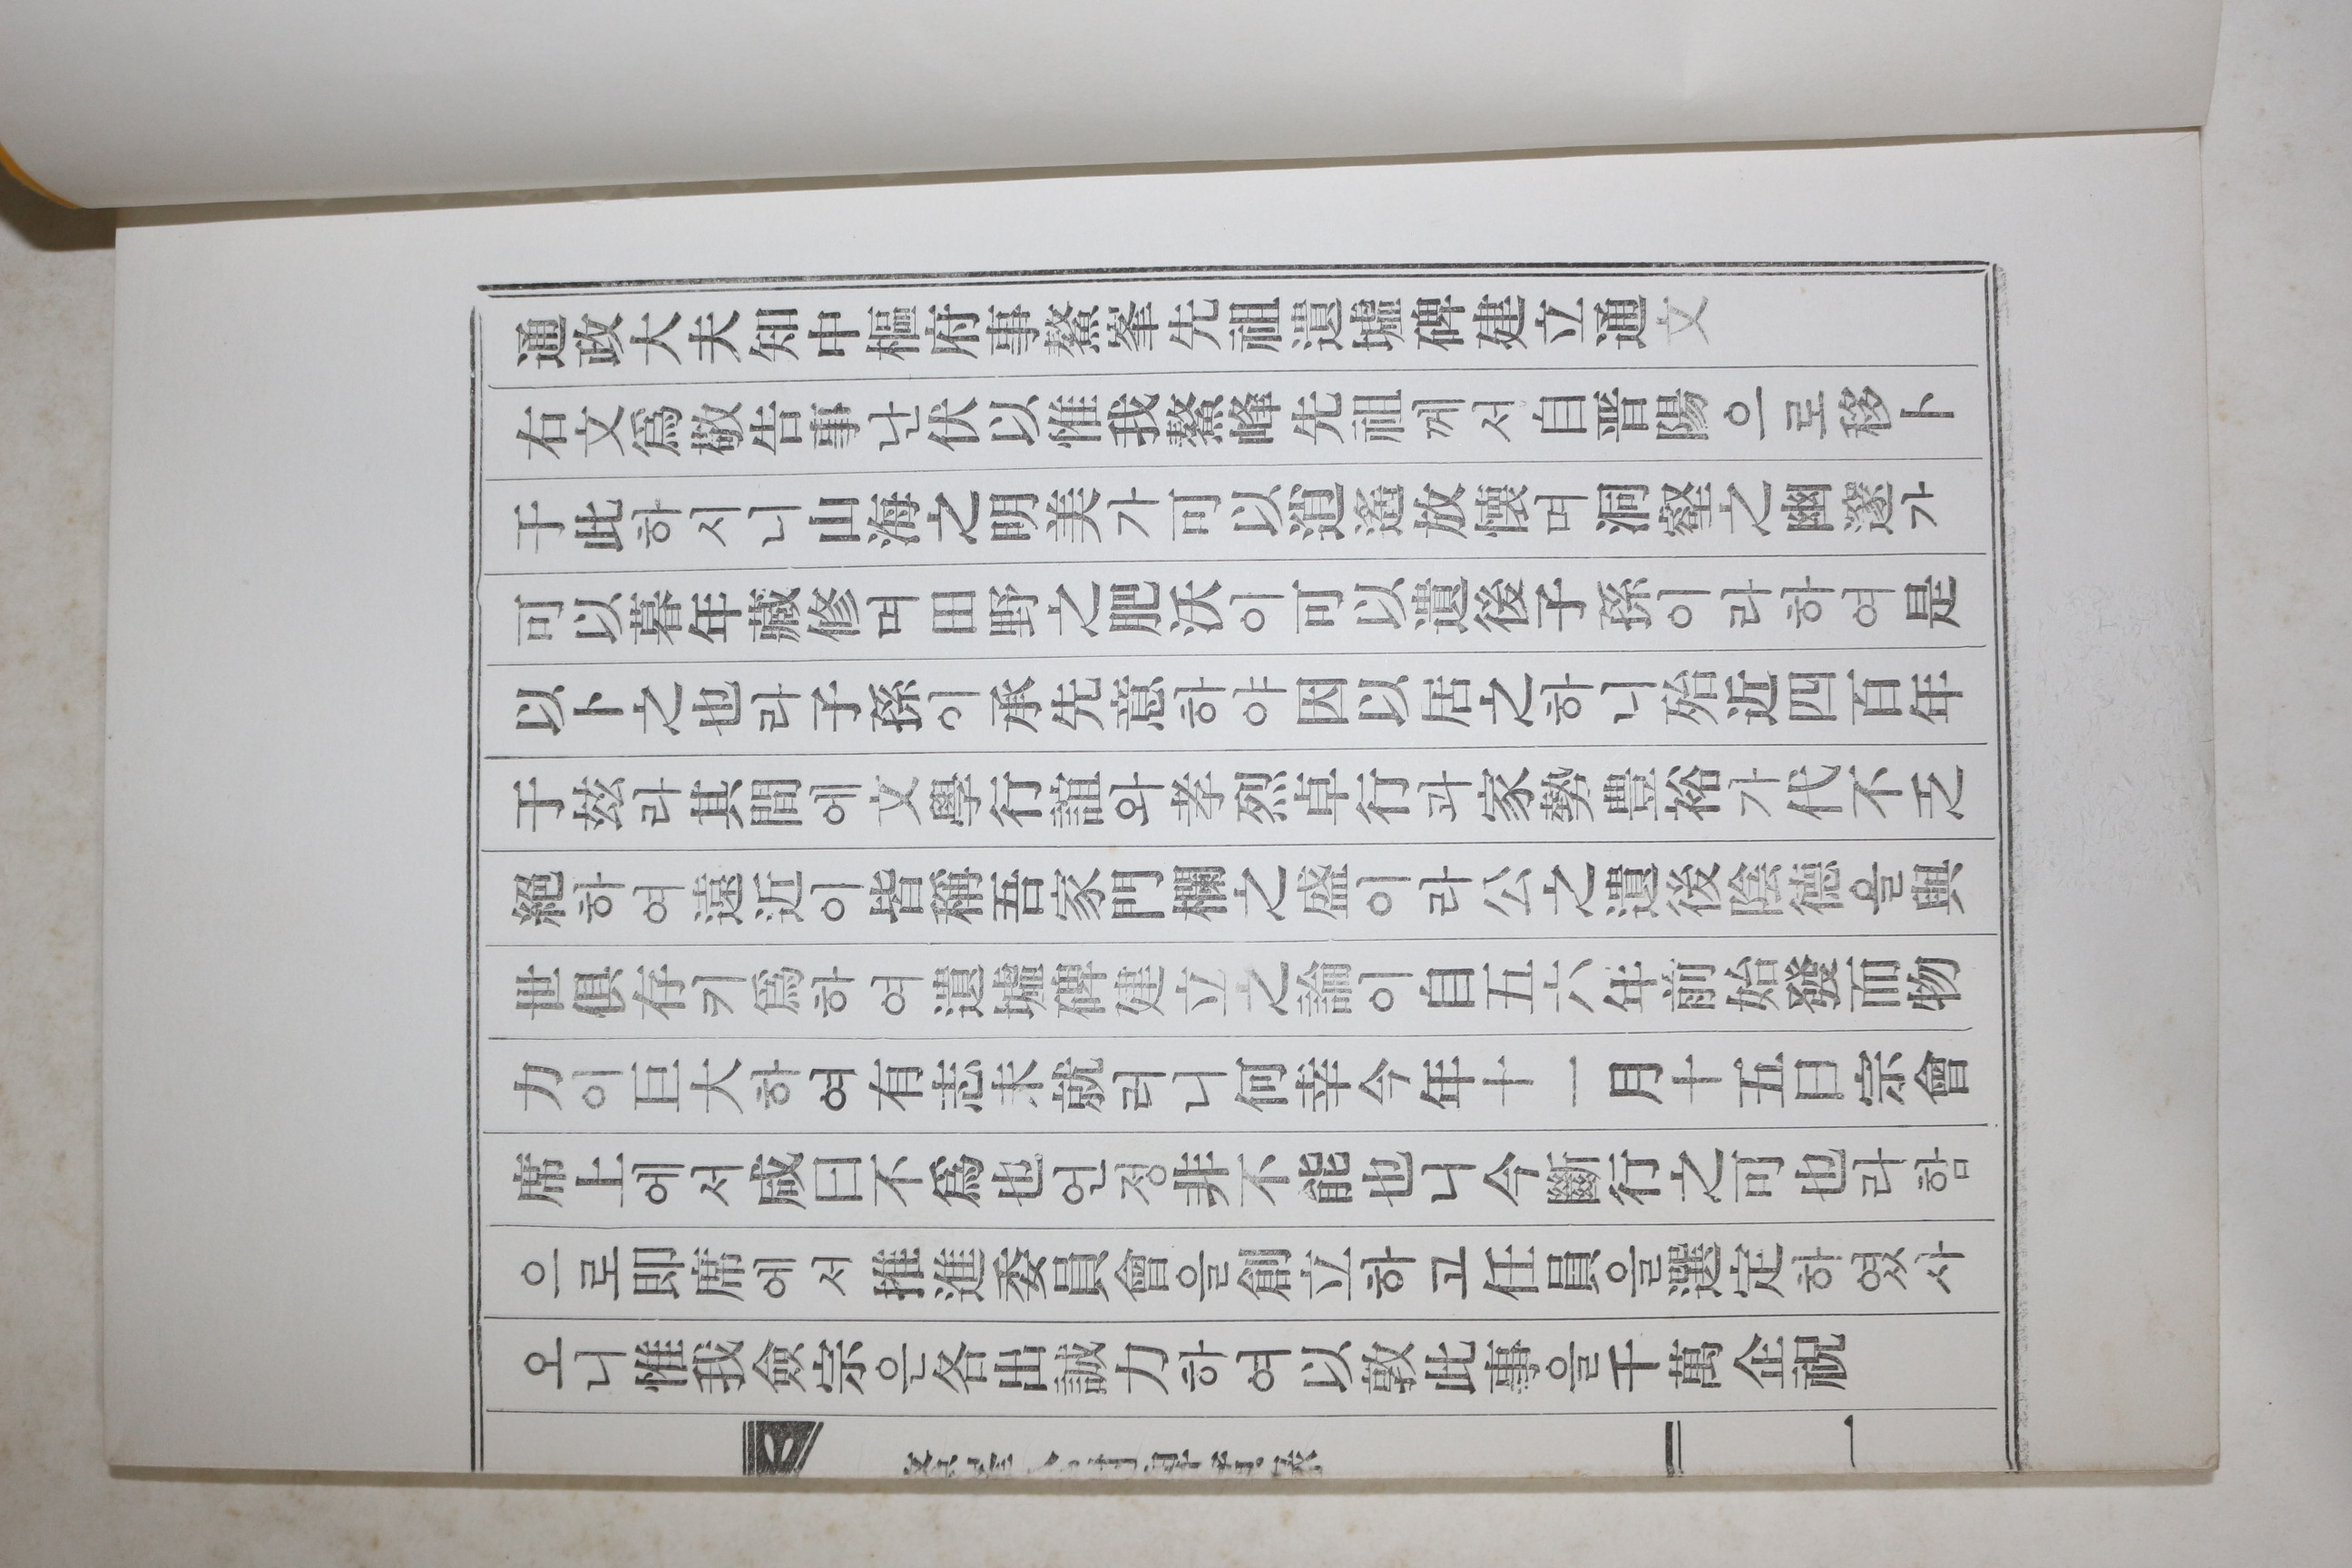 通政大夫知中樞府事鰲峯先祖遺墟碑建立通文
右文爲敬告事난伏以惟我鰲峰先祖께서自晋陽으로移卜
于此하시니山海之明美가可以逍遙放懷며洞壑之幽邃가
可以暮年藏修며田野之肥沃이可以遺後子孫이라하여是
以卜之也라子孫이承先意하야因以居之하니殆近四百年
于玆라其間에文學行誼와孝烈卓行과家勢豊裕가代不乏
絕하여遠近이皆稱吾家門欄之盛이라公之遺後陰德을與
世俱存키爲하여遺墟碑建立之論이自五六年前始發而物
力이巨大하여有志未就러니何幸今年十一月十五日宗會
席上에서咸曰不爲也언정非不能也니今斷行之可也라함
으로即席에서推進委員會을創立하고任員을選定하였사
오니惟我僉宗은各出誠力하여以敦此事을千萬企祝
一